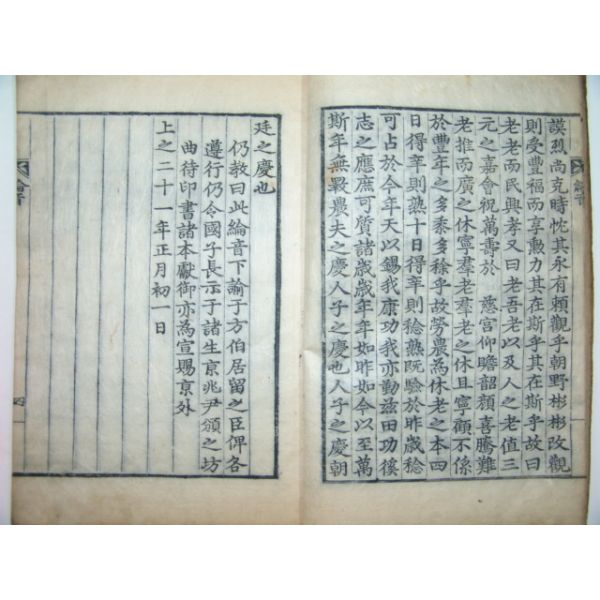 謨烈尚克時忱其永有賴觀乎朝野彬彬改觀
則受豊福而享勳力其在斯乎其在斯乎故曰
老老而民興孝又曰老吾老以及人之老值三
元之嘉會祝萬壽於 慈宮仰瞻韶顏喜騰難
老推而廣之休寧羣老羣老之休且寧顧不係
於豊年之多黍多稌乎故勞農為休老之本四
日得辛則熟十日得辛則稔熟阮驗於昨歲稔
可占於今年天以錫我康功我亦勤茲田功徯
志之應庶可質諸歲歲年年如昨如今以至萬
斯年無斁農夫之慶人子之慶也人子之慶朝
廷之慶也
仍教曰此綸音下諭于方伯居留之臣俾各
遵行仍令國子長示于諸生京兆尹頒之坊
曲待印書諸本獻御亦為宣賜京外
上之二十一年正月初一日
綸音